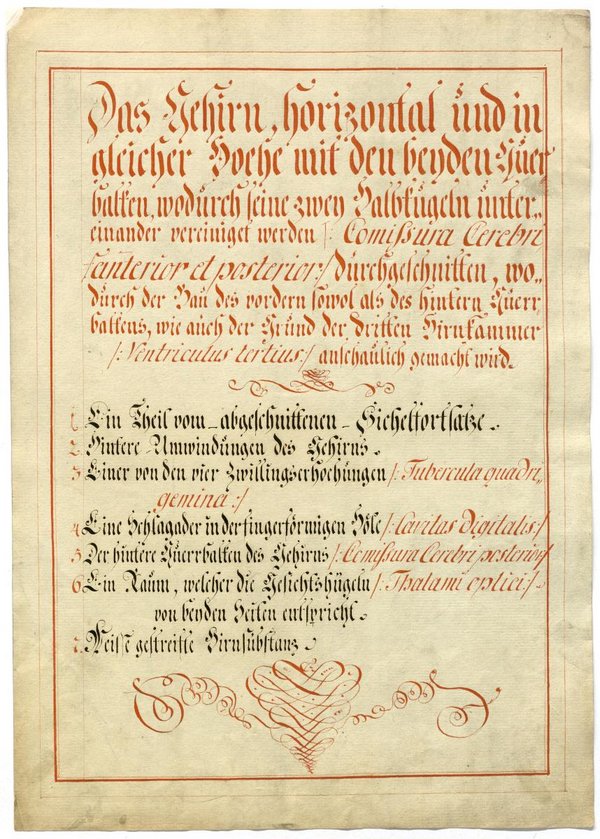 Das Gehirn, horizontal und in
gleicher Hoehe mit den beyden Quer
balken, wodurch seine zwey Halbkugeln unter„
einander vereiniget werden /: Comissura Cerebri
anterior et posterior :/ durchgeschnitten, wo„
durch der Bau des vordern sowol als des hintern Querr
balkens, wie auch der Grund der dritten Hirnkammer
/: Ventriculus tertius :/ anschaulich gemacht wird.
1. Ein Theil vom abgeschnittenen Sichelfortsatze.
2. Hintere Umwindungen des Gehirns.
3. Einer von den vier Zwillingserhöhungen /: Tubercula quadri„
gemina :/
4. Eine Schlagader in der fingerförmigen Höle /: Cavitas digitalis :/
5. Der hintere Querrbalken des Gehirns /: Comissura Cerebri posterior :/
6. Ein Raum, welcher die Gesichtshügeln /: Thalami optici :/
von beyden Seiten entspricht.
7. Weisse gestreifte Hirnsubstanz.